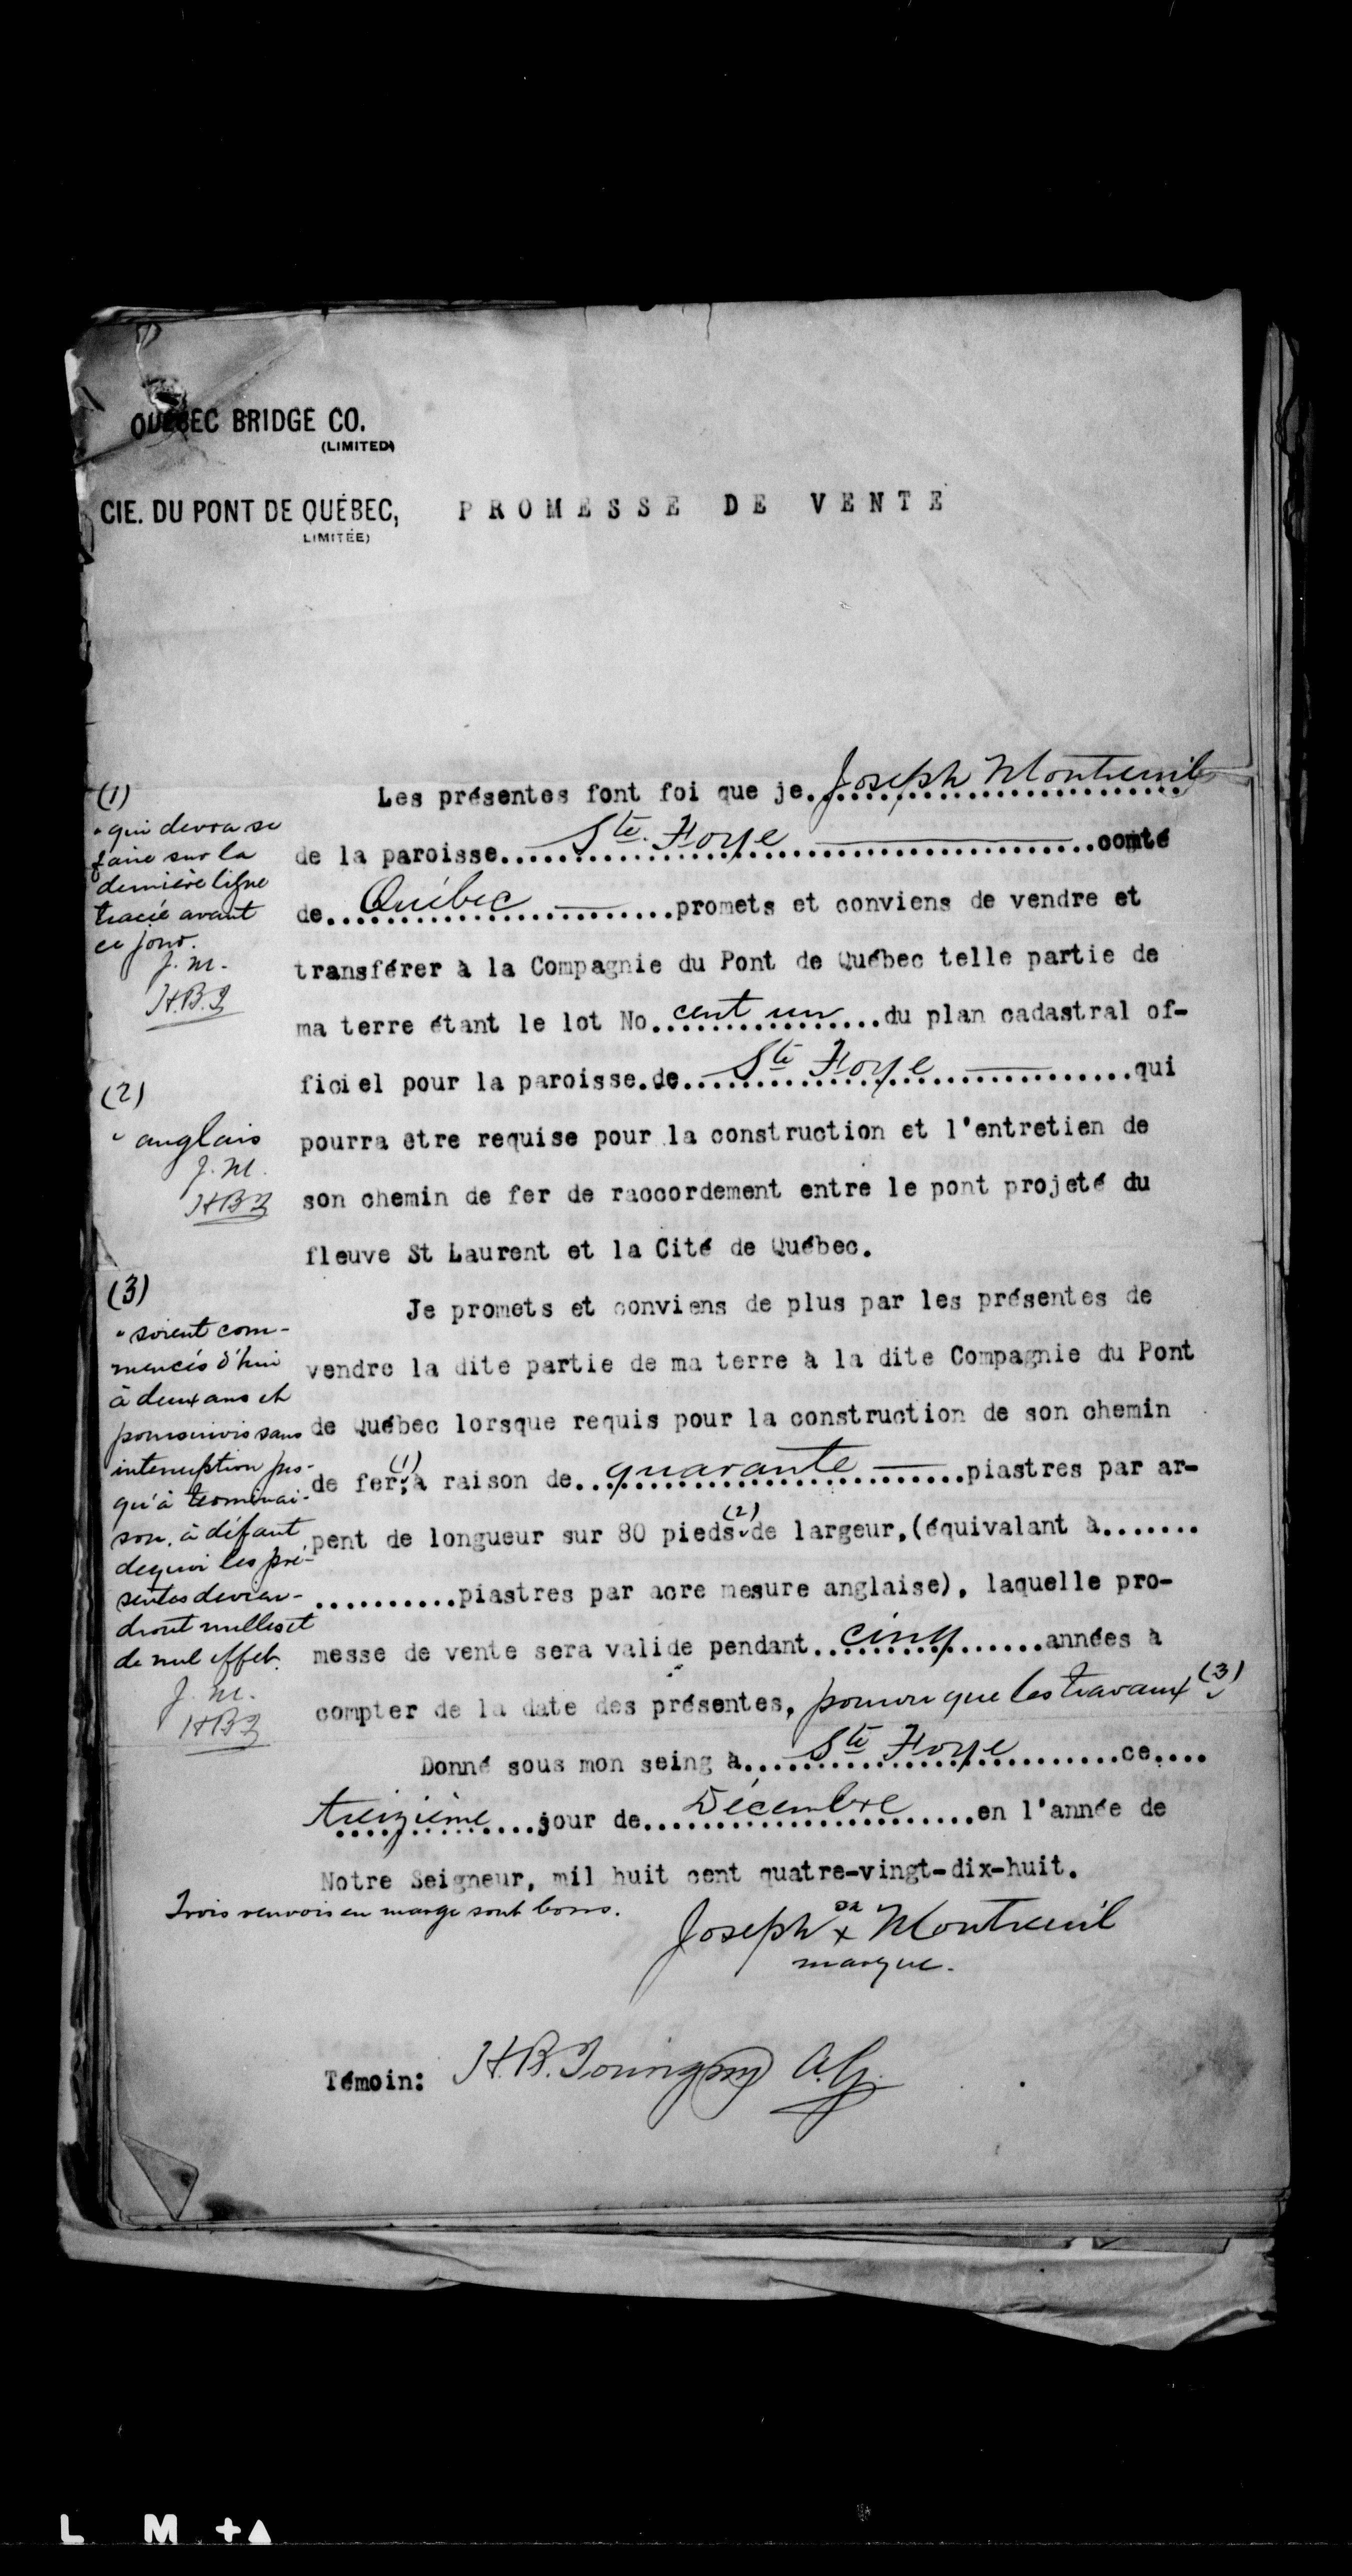 QUÉBEC BRIDGE CO.
(LIMITED)
CIE. DU PONT DE QUÉBEC,
LIMITÉE)
PROMESSE DE VENTE
Les présentes font foi que je. Joseph Montreuil
de la paroisse. Ste. Foye comté
de. Québec promets et conviens de vendre et
transférer à la Compagnie du Pont de Québec telle partie de
ma terre étant le lot No. cent un du plan cadastral of-
ficiel pour la paroisse.de. Ste Foye qui
pourra etre requise pour la construction et l'entretien de
son chemin de fer de raccordement entre le pont projeté du
fleuve St Laurent et la Cité de Québec.
Je promets et conviens de plus par les présentes de
vendre la dite partie de ma terre à la dite Compagnie du Pont
de Québec lorsque requis pour la construction de son chemin
de fer,(1) à raison de. quarante piastres par ar-
pent de longueur sur 80 pieds (2) de largeur,(équivalant à........
..........piastres par acre mesure anglaise), laquelle pro-
messe de vente sera valide pendant. cinq années à
compter de la date des présentes, pourvu que les travaux (3)
Donné sous mon seing à. Ste Foye ce....
treizième jour de. Décembre en l'année de
Notre Seigneur, mil huit cent quatre-vingt-dix-huit.
Trois renvois en marge sont bons.
Joseph sa x Montreuil
marque.
Témoin: H.B.
(1)
qui devra se
faire sur la
dernière ligne
tracée avant
ce jour.
J. M.
H.B.
(2)
anglais
J. M.
HB
(3)
soient com-
mencés d'hui
à deux ans et
poursuivis sans
interruption jus-
qu'à terminai-
son, à défaut
dequoi les pré-
sentes devien-
dront nulles et
de nul effet.
J. M.
HB
L M +